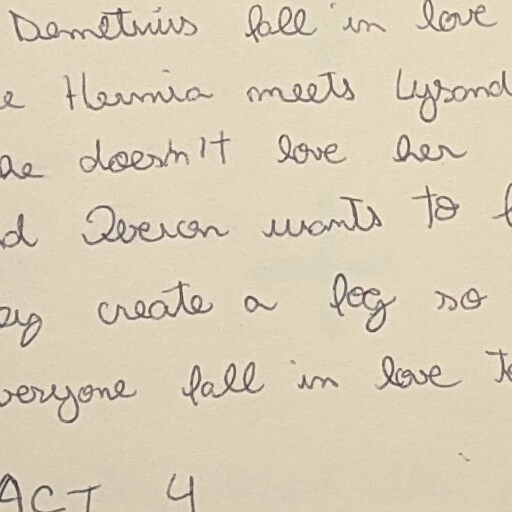 Demetrius fall in love
e Hermia meets Lysand
he doesn't love her
d Oberon wants to f
ey create a fog so
veryone fall in love to
ACT 4